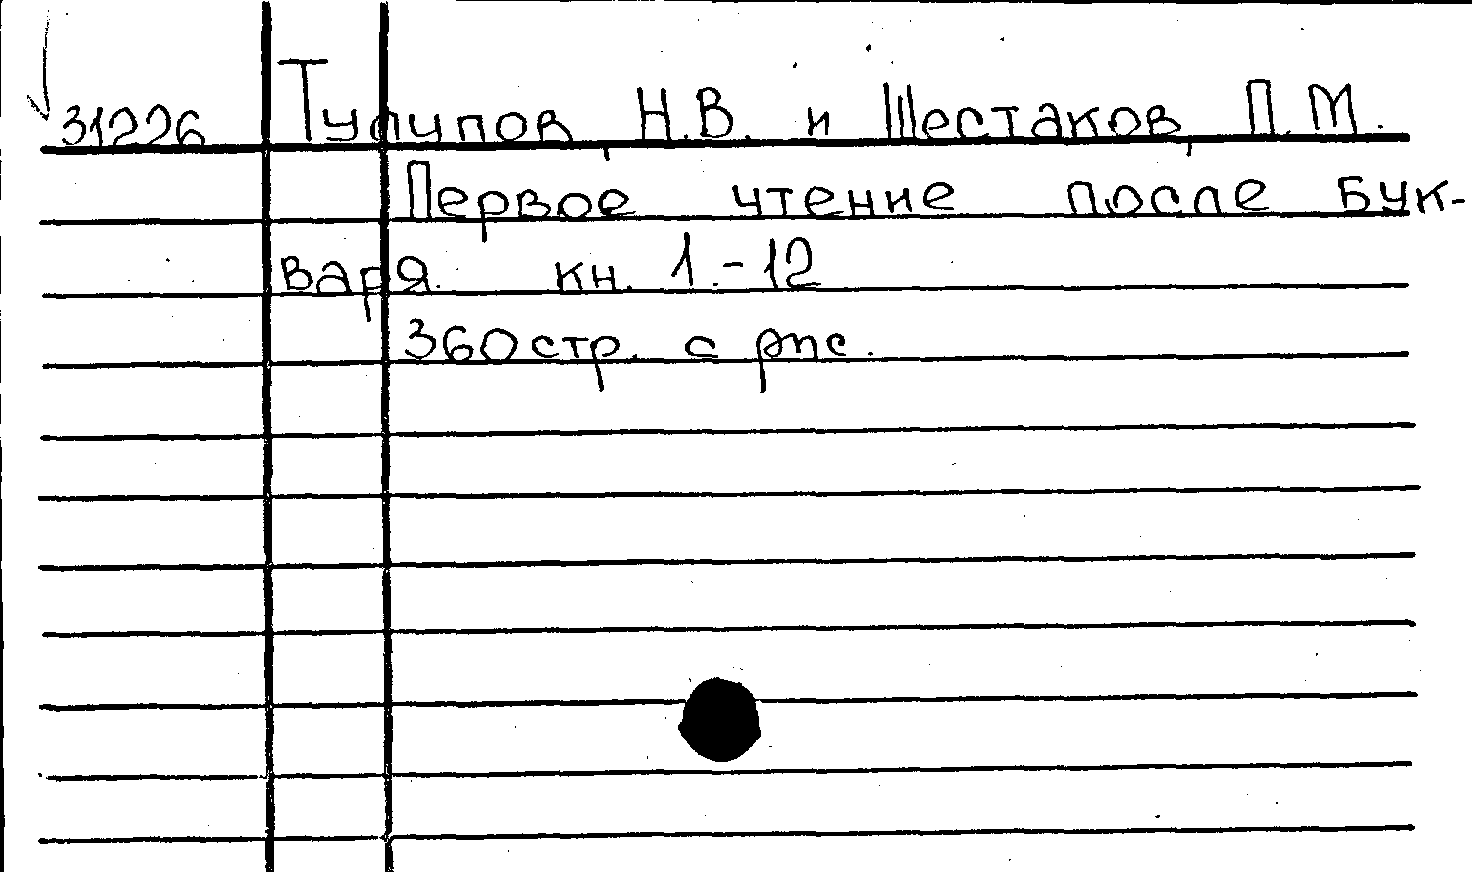 31226 Тулупов, Н.В. и Шестаков, П.М.
Первое чтение после Бук-
варя. кн. 1.-12
360 стр. с рис.